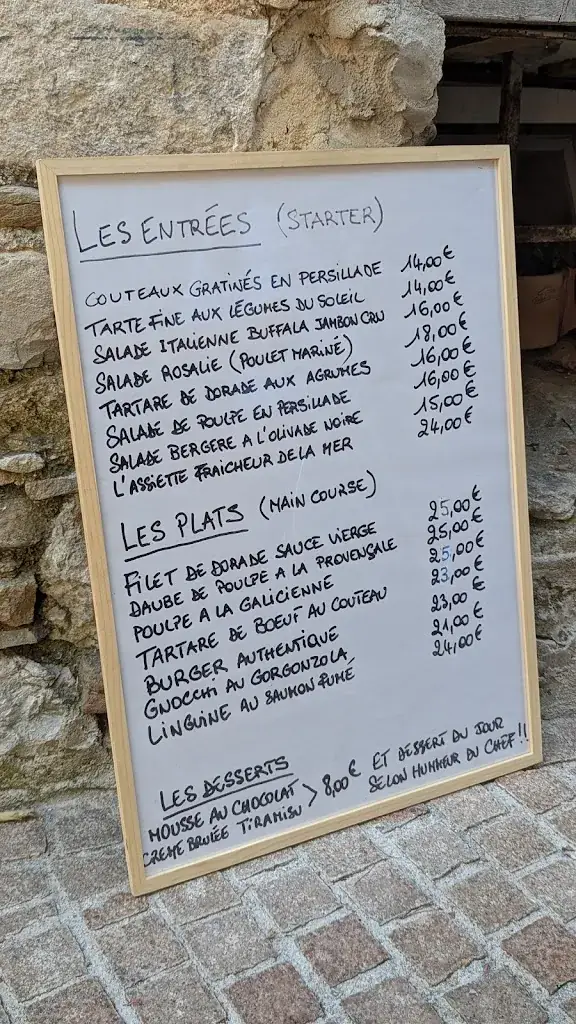 LES ENTRÉES (STARTER)
COUTEAUX GRATINÉS EN PERSILLADE 14,00€
TARTE FINE AUX LÉGUMES DU SOLEIL 14,00€
SALADE ITALIENNE BUFFALA JAMBON CRU 16,00€
SALADE ROSALIE (POULET MARINÉ) 18,00€
TARTARE DE DORADE AUX AGRUMES 16,00€
SALADE DE POULPE EN PERSILLADE 16,00€
SALADE BERGERE A L'OLIVADE NOIRE 15,00€
L'ASSIETTE FRAICHEUR DE LA MER 24,00€
LES PLATS (MAIN COURSE)
FILET DE DORADE SAUCE VIERGE 25,00€
DAUBE DE POULPE A LA PROVENÇALE 25,00€
POULPE A LA GALICIENNE 25,00€
TARTARE DE BOEUF AU COUTEAU 23,00€
BURGER AUTHENTIQUE 23,00 €
GNOCCHI AU GORGONZOLA 21,00€
LINGUINE AU SAUMON FUMÉ 24,00€
LES DESSERTS
MOUSSE AU CHOCOLAT > 8,00€ ET DESSERT DU JOUR
CREME BRULÉE TIRAMISU SELON HUMEUR DU CHEF!!